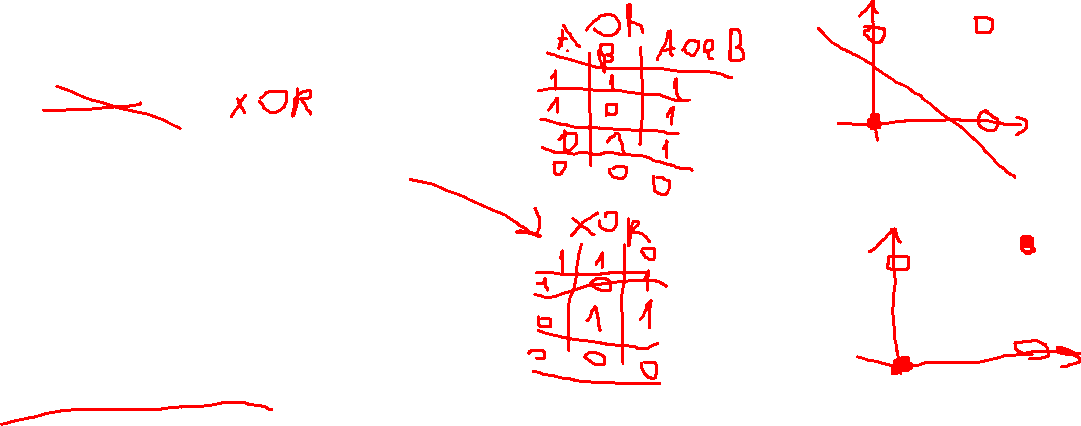 XOR
OR
A B A OR B
1 1 1
1 0 1
0 1 1
0 0 0
XOR
1 1 0
1 0 1
0 1 1
0 0 0